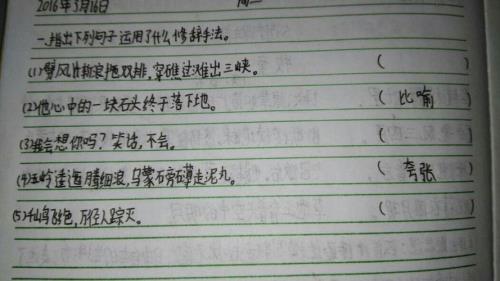 2016年3月16日 周二
一、指出下列句子运用了什么修辞手法。
(1)劈风斩浪拖双排,穿礁过滩出三峡。 ( )
(2)他心中的一块石头终于落下地。 ( 比喻 )
(3)我会想你吗?笑话,不会。 ( )
(4)五岭逶迤腾细浪,乌蒙磅礴走泥丸。 ( 夸张 )
(5)千山鸟飞绝,万径人踪灭。 ( )